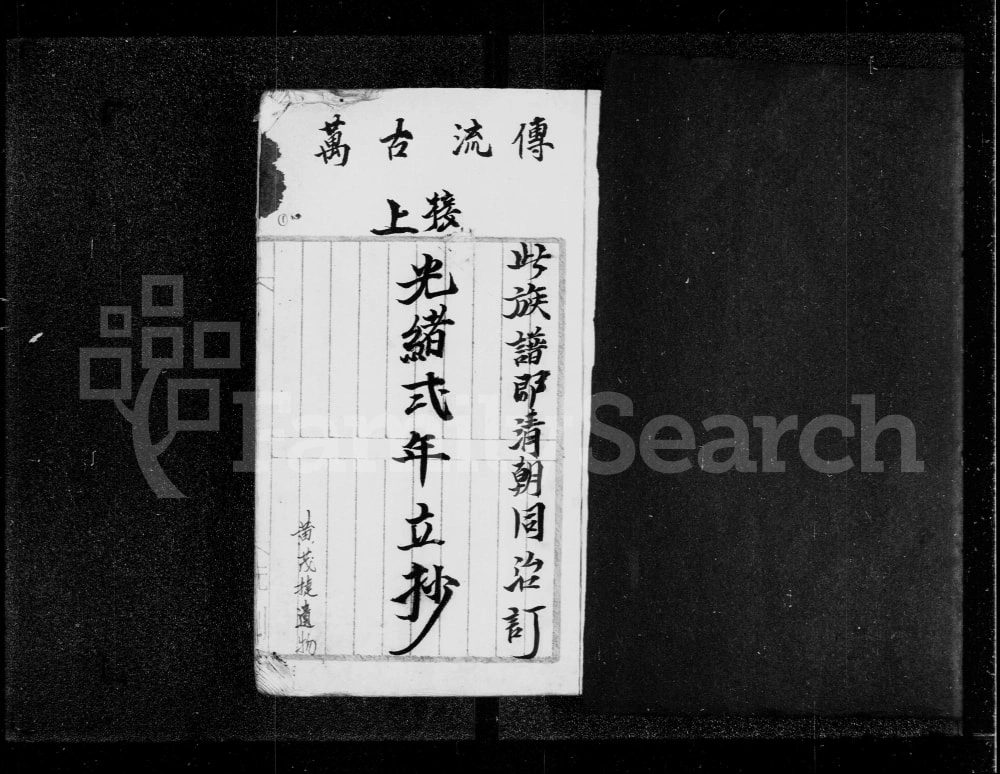 傳流古萬
接上
此族譜即清朝同治訂
光緒弍年立抄
黃茂捷遺物
①
FamilySearch